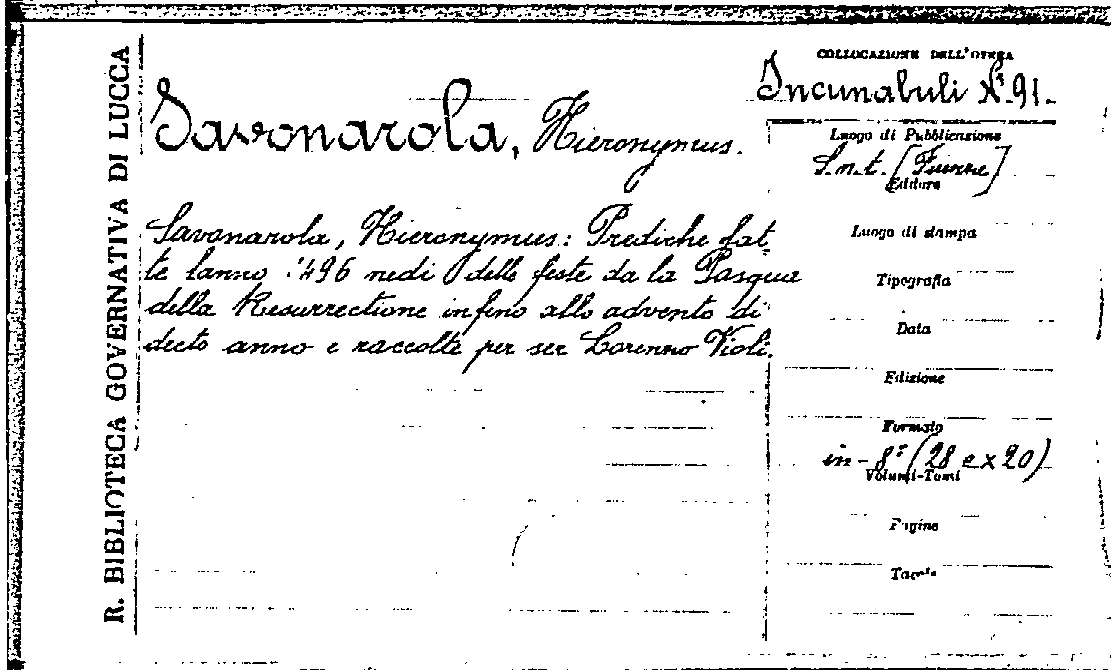 R. BIBLIOTECA GOVERNATIVA DI LUCCA
Savonarola, Hieronymus.
Savonarola, Hieronymus: Prediche fat-
te lanno 1496 nedi delle feste da la Pasqua
della Resurrectione infino allo advento di
decto anno e raccolte per ser Lorenno Violi.
COLLOCAZIONE DELL'OPERA
Incunabuli N.º 91-
Luogo di Pubblicazione
S.n.t. [Firenze]
Editore
Luogo di stampa
Tipografia
Data
Edizione
Formato
in-8º (28 e x 20)
Volumi-Tomi
Pagine
Tavole